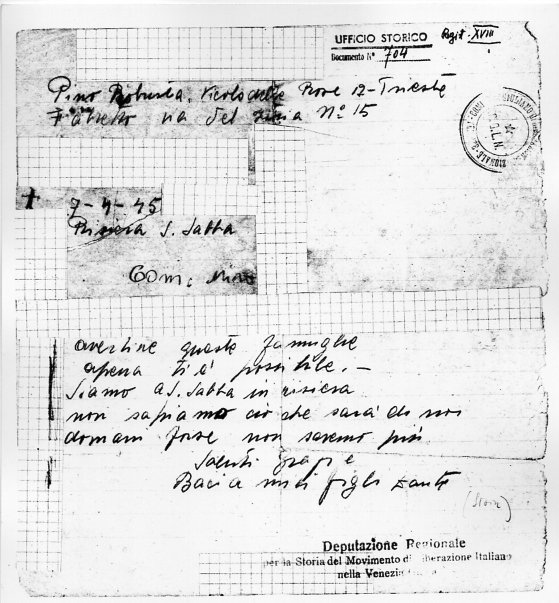 UFFICIO STORICO
Documento N° 704
Regist. XVIII
Pino Robusta. Vicolo delle Rose 12 - Trieste
via del N° 15
7-4-45
Risiera S. Sabba
Com: Mino
avertire queste famiglie
apena ti è possibile. —
Siamo a S. Sabba in risiera
non sapiamo ciò che sarà di noi
domani forse non saremo più
Saluti grazie
Bacia miei figli
Deputazione Regionale
per la Storia del Movimento di Liberazione Italiano
nella Venezia